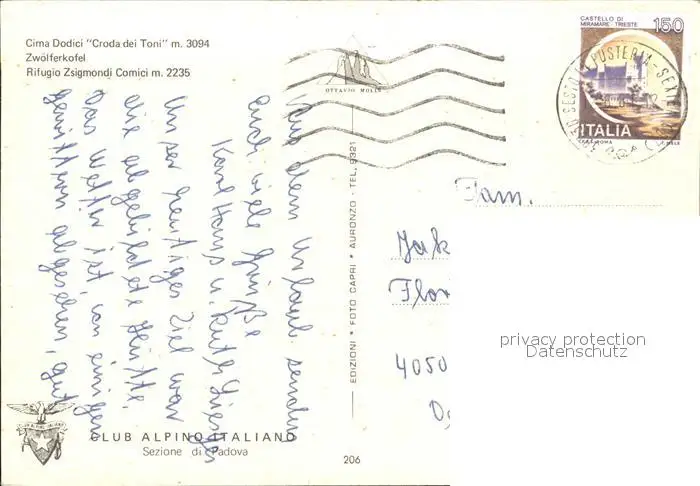 Cima Dodici "Croda dei Toni" m. 3094
Zwölferkofel
Rifugio Zsigmondi Comici m. 2235
OTTAVIO MOLIN
CASTELLO DI
MIRAMARE - TRIESTE
150
ITALIA
PUSTERIA - SEXTEN
Aus dem Urlaub senden
Euch viele Grüße
Karl Hans u. Ruth
Unser heutiges Ziel war
die abgebildete Hütte.
Das Wetter ist, von einigen
Gewittern abgesehen, gut
EDIZIONI * FOTO CAPRI * AURONZO - TEL. 9321
Fam.
Jak
Flor
4050
privacy protection
Datenschutz
CLUB ALPINO ITALIANO
Sezione di Padova
206